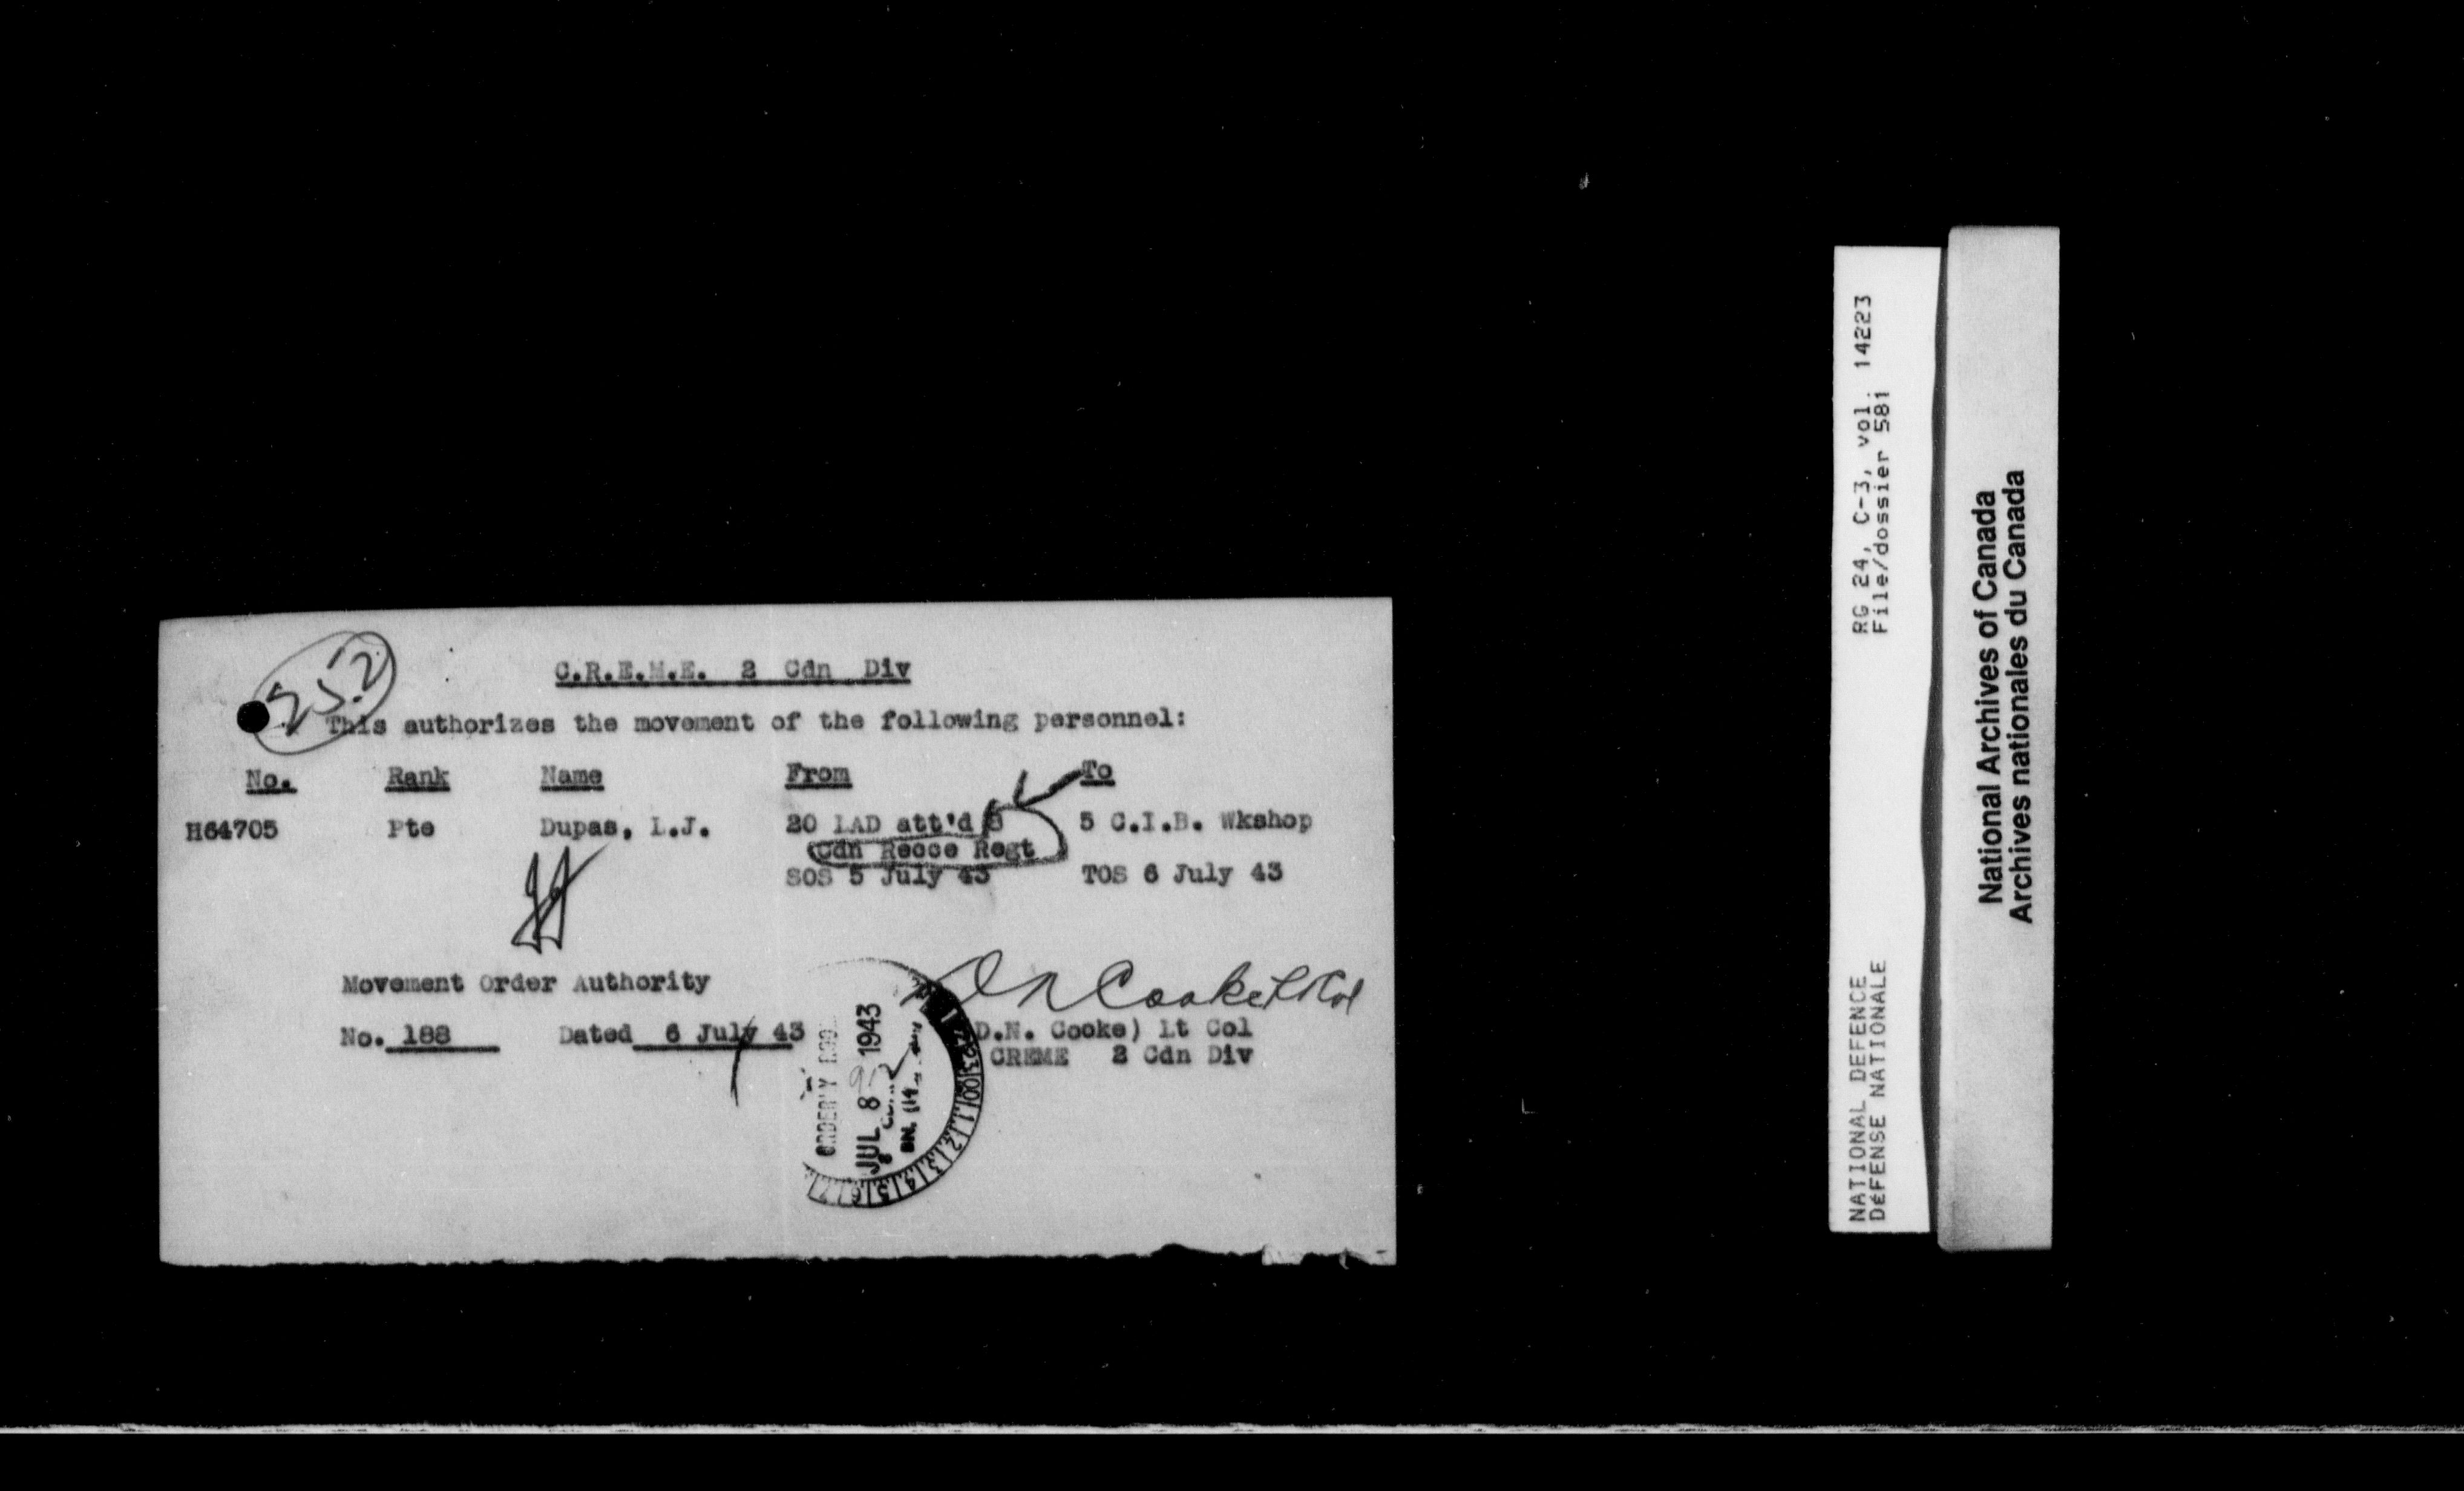 252
C.R.E.M.E. 2 Cdn Div
This authorizes the movement of the following personnel:
No. Rank Name From To
H64705 Pte Dupas, L.J. 20 LAD att'd 8 5 C.I.B. Wkshop
Cdn Recce Regt
SOS 5 July 43 TOS 6 July 43
Movement Order Authority
D N Cooke Lt Col
No. 188 Dated 6 July 43
D.N. Cooke) Lt Col
CREME 2 Cdn Div
ORDERLY
JUL 8 1943
RG 24, C-3, vol. 14223
File/dossier 581
NATIONAL DEFENCE
DéFENSE NATIONALE
National Archives of Canada
Archives nationales du Canada